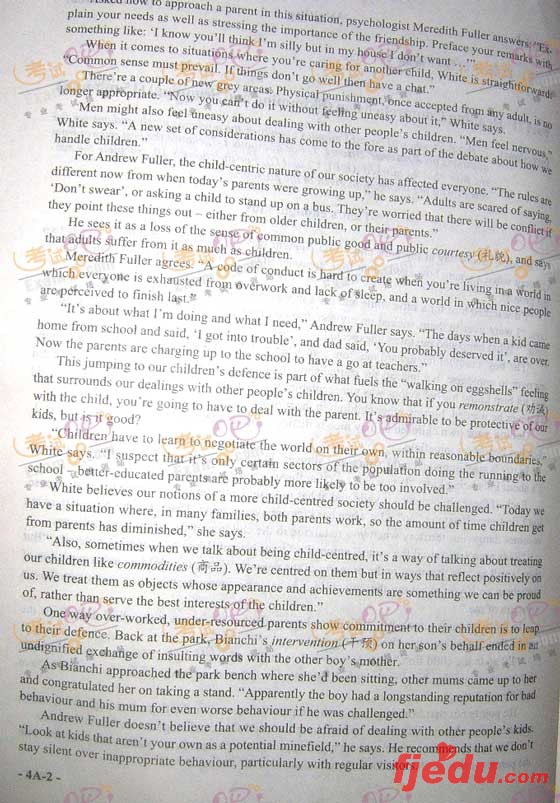 Asked how to approach a parent in this situation, psychologist Meredith Fuller answers: "Ex-
plain your needs as well as stressing the importance of the friendship. Preface your remarks with
something like: 'I know you'll think I'm silly but in my house I don't want …'"
When it comes to situations where you're caring for another child, White is straightforward:
"Common sense must prevail. If things don't go well then have a chat."
There're a couple of new grey areas. Physical punishment, once accepted from any adult, is no
longer appropriate. "Now you can't do it without feeling uneasy about it," White says.
Men might also feel uneasy about dealing with other people's children. "Men feel nervous,"
White says. "A new set of considerations has come to the fore as part of the debate about how we
handle children."
For Andrew Fuller, the child-centric nature of our society has affected everyone. "The rules are
different now from when today's parents were growing up," he says. "Adults are scared of saying,
'Don't swear', or asking a child to stand up on a bus. They're worried that there will be conflict if
they point these things out – either from older children, or their parents."
He sees it as a loss of the sense of common public good and public courtesy (礼貌), and says
that adults suffer from it as much as children.
Meredith Fuller agrees. "A code of conduct is hard to create when you're living in a world in
which everyone is exhausted from overwork and lack of sleep, and a world in which nice people
are perceived to finish last."
"It's about what I'm doing and what I need," Andrew Fuller says. "The days when a kid came
home from school and said, 'I got into trouble', and dad said, 'You probably deserved it', are over.
Now the parents are charging up to the school to have a go at teachers."
This jumping to our children's defence is part of what fuels the "walking on eggshells" feeling
that surrounds our dealings with other people's children. You know that if you remonstrate (劝诫)
with the child, you're going to have to deal with the parent. It's admirable to be protective of our
kids, but is it good?
"Children have to learn to negotiate the world on their own, within reasonable boundaries,"
White says. "I suspect that it's only certain sectors of the population doing the running to the
school – better-educated parents are probably more likely to be too involved."
White believes our notions of a more child-centred society should be challenged. "Today we
have a situation where, in many families, both parents work, so the amount of time children get
from parents has diminished," she says.
"Also, sometimes when we talk about being child-centred, it's a way of talking about treating
our children like commodities (商品). We're centred on them but in ways that reflect positively on
us. We treat them as objects whose appearance and achievements are something we can be proud
of, rather than serve the best interests of the children."
One way over-worked, under-resourced parents show commitment to their children is to leap
to their defence. Back at the park, Bianchi's intervention (干预) on her son's behalf ended in an
undignified exchange of insulting words with the other boy's mother.
As Bianchi approached the park bench where she'd been sitting, other mums came up to her
and congratulated her on taking a stand. "Apparently the boy had a longstanding reputation for bad
behaviour and his mum for even worse behaviour if he was challenged."
Andrew Fuller doesn't believe that we should be afraid of dealing with other people's kids.
"Look at kids that aren't your own as a potential minefield," he says. He recommends that we don't
stay silent over inappropriate behaviour, particularly with regular visitors.
- 4A-2 -
fjedu.com